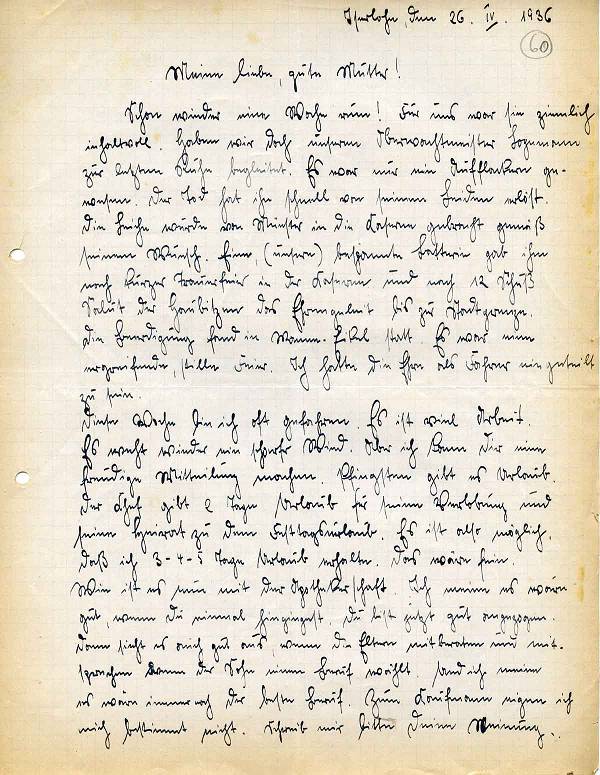 Iserlohn, den 26. IV. 1936
60
Meine liebe, gute Mutter!
Schon wieder eine Woche rum! Für uns war sie ziemlich
inhaltvoll. Haben wir doch unseren Oberwachtmeister
zur letzten Ruhe begleitet. Es war nur ein Aufflackern ge-
wesen. Der Tod hat ihn schnell von seinem Leiden erlöst.
Die Leiche wurde von Münster in die Kaserne gebracht gemäß
seinem Wunsch. Eine, (unsere) bespannte Batterie gab ihm
nach kurzer Trauerfeier in der Kaserne und nach 12 Schuß
Salut der Haubitzen das Ehrengeleit bis zur Stadtgrenze.
Die Beerdigung fand in Wanne-Eikel statt. Es war eine
ergreifende, stille Feier. Ich hatte die Ehre als Fahrer eingeteilt
zu sein.
Diese Woche bin ich oft gefahren. Es ist viel Arbeit.
Es weht wieder ein scharfer Wind. Aber ich kann Dir eine
freudige Mitteilung machen. Pfingsten gibt es Urlaub.
Der Chef gibt 2 Tage Urlaub für seine Verlobung und
seine Heirat zu dem Festtagsurlaub. Es ist also möglich,
daß ich 3-4-5 Tage Urlaub erhalte. Das wäre fein.
Wie ist es nun mit der Apothekerschaft. Ich meine es wäre
gut, wenn Du einmal hingingest, Du bist jetzt gut angezogen.
Dann sieht es auch gut aus, wenn die Eltern mitberaten und mit-
sprechen wenn der Sohn einen Beruf wählt. Und ich meine
es wäre immer noch der beste Beruf. Zum Kaufmann eigne ich
mich bestimmt nicht. Schreib mir bitte Deine Meinung.